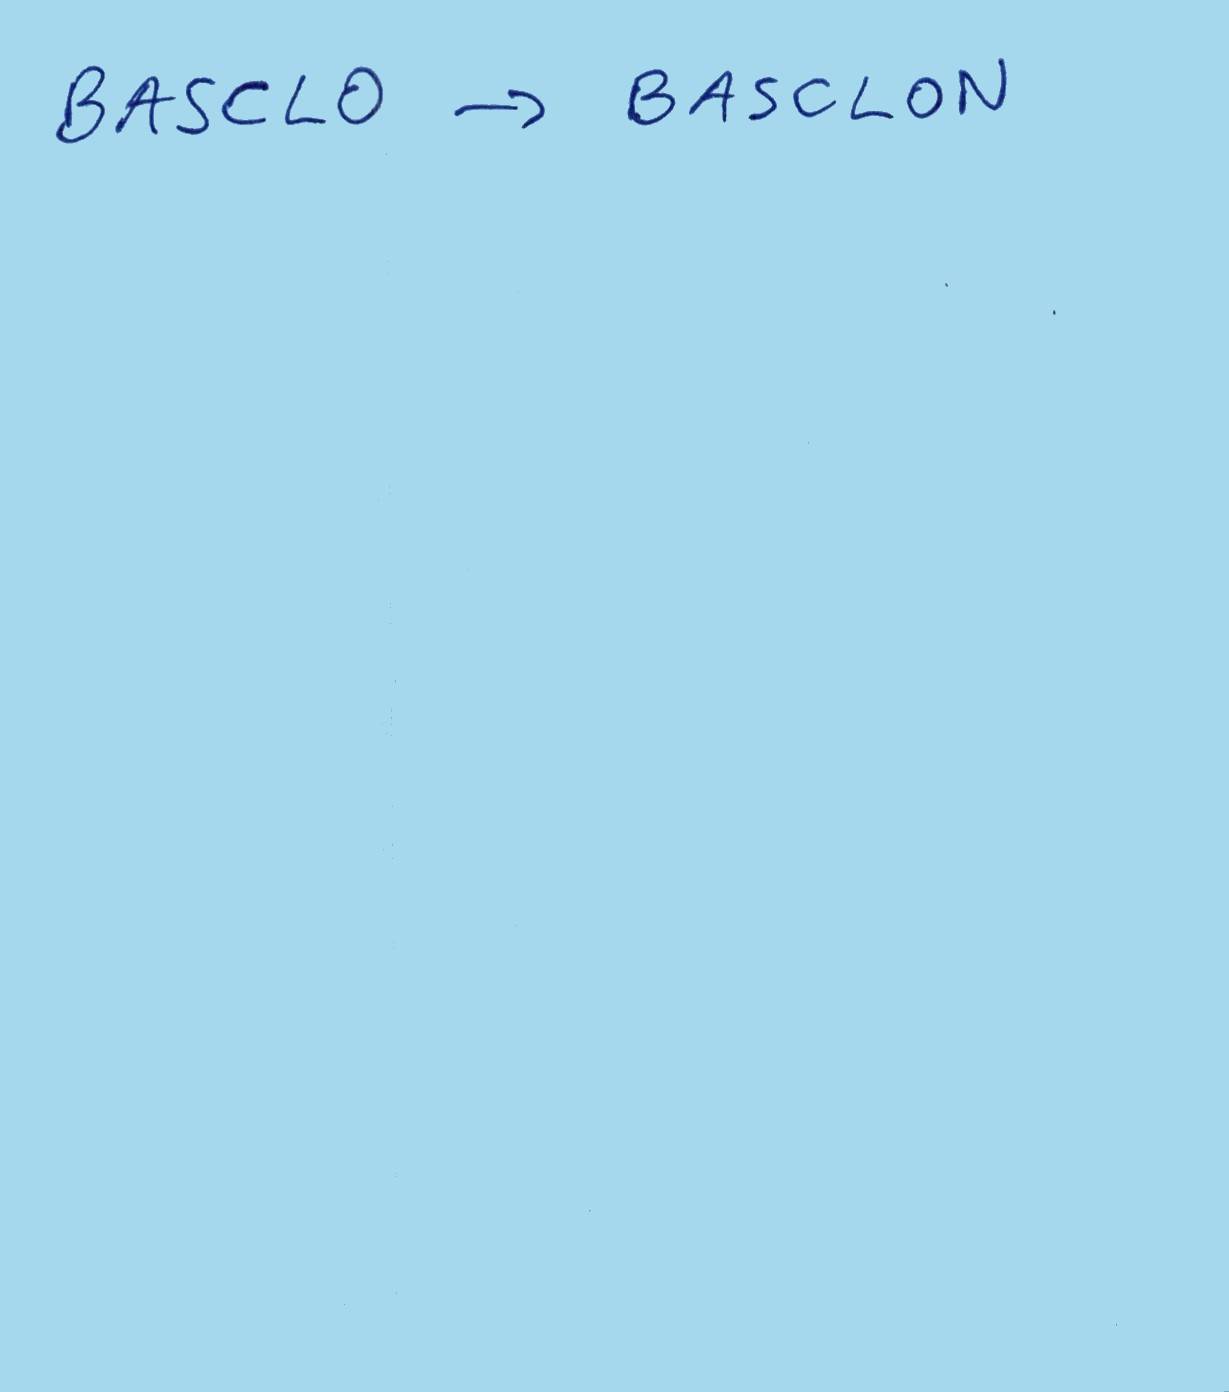 BASCLO → BASCLON